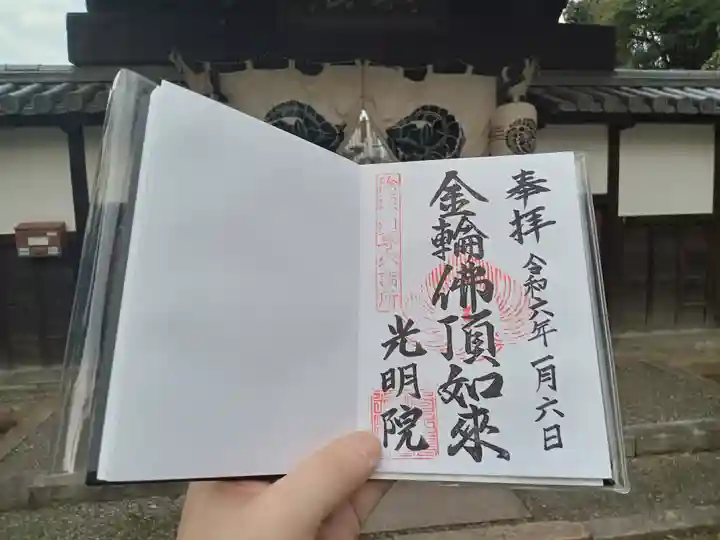 奉拝 令和六年一月六日
金輪佛頂如來
光明院